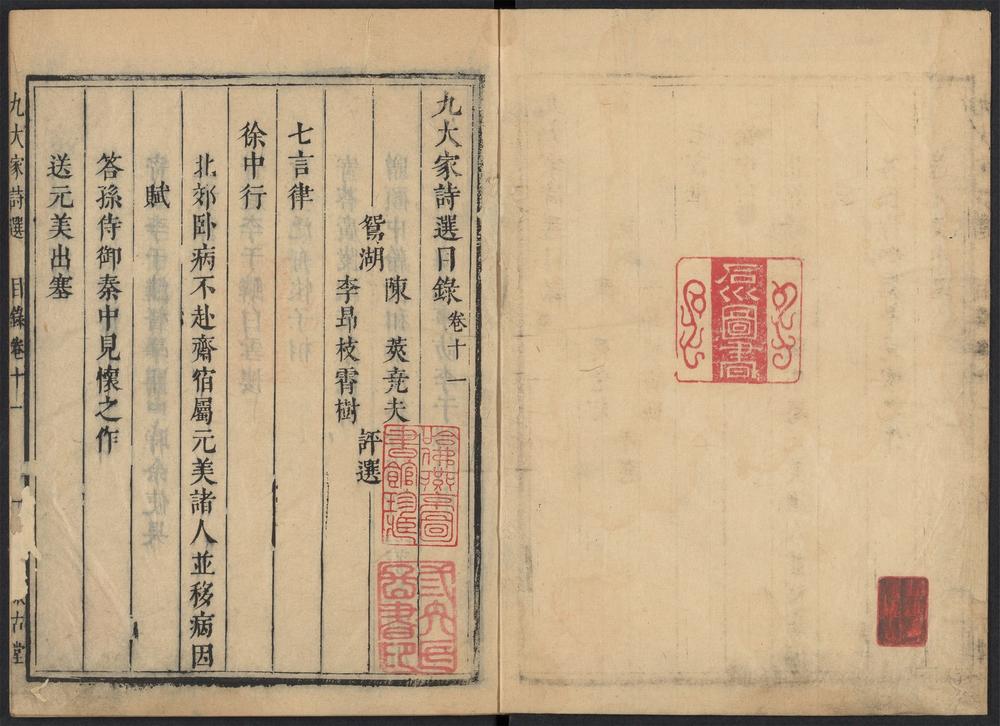 九大家詩選目錄卷十一
鴛湖
陳莢堯夫
李昻枝霄樹
評選
七言律
徐中行
北郊卧病不赴齋宿屬元美諸人並移病因
賦
答孫侍御秦中見懷之作
送元美出塞
九大家詩選 目錄卷十一
古堂
圖書
哈佛燕京圖書館珍藏